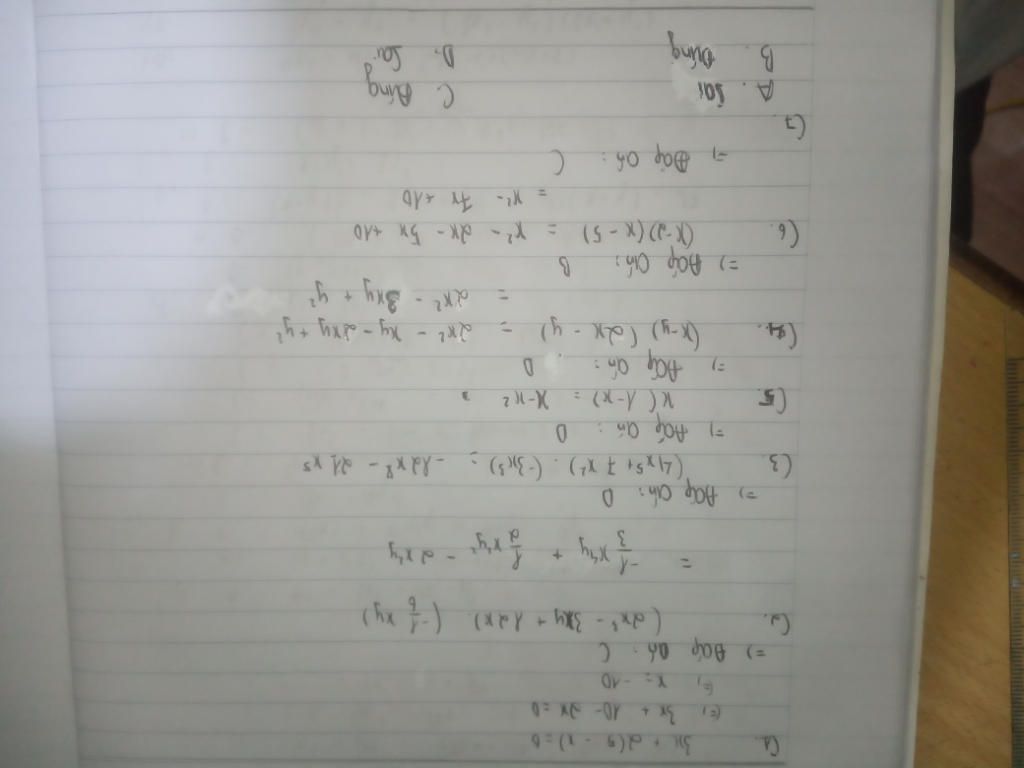 C1. 3x + 2(5 - x) = 0
(=) 3x + 10 - 2x = 0
(=) x = -10
=) Đáp án : C
C2. (2x³ - 3xy + 12x). (-1/6 xy)
= -1/3 x⁴y + 1/2 x²y² - 2x²y
=) Đáp án : D
C3. (4x⁵ + 7x²). (-3x³) = -12x⁸ - 21x⁵
=) Đáp án : D
C5. x(1-x) = x-x²
=) Đáp án : D
C4. (x-y) (2x - y) = 2x² - xy - 2xy + y²
= 2x² - 3xy + y²
=) Đáp án : B
C6. (x-2)(x-5) = x² - 2x - 5x + 10
= x² - 7x + 10
=) Đáp án : C
C7.
A. Sai C. Đúng
B. Đúng D. Sai